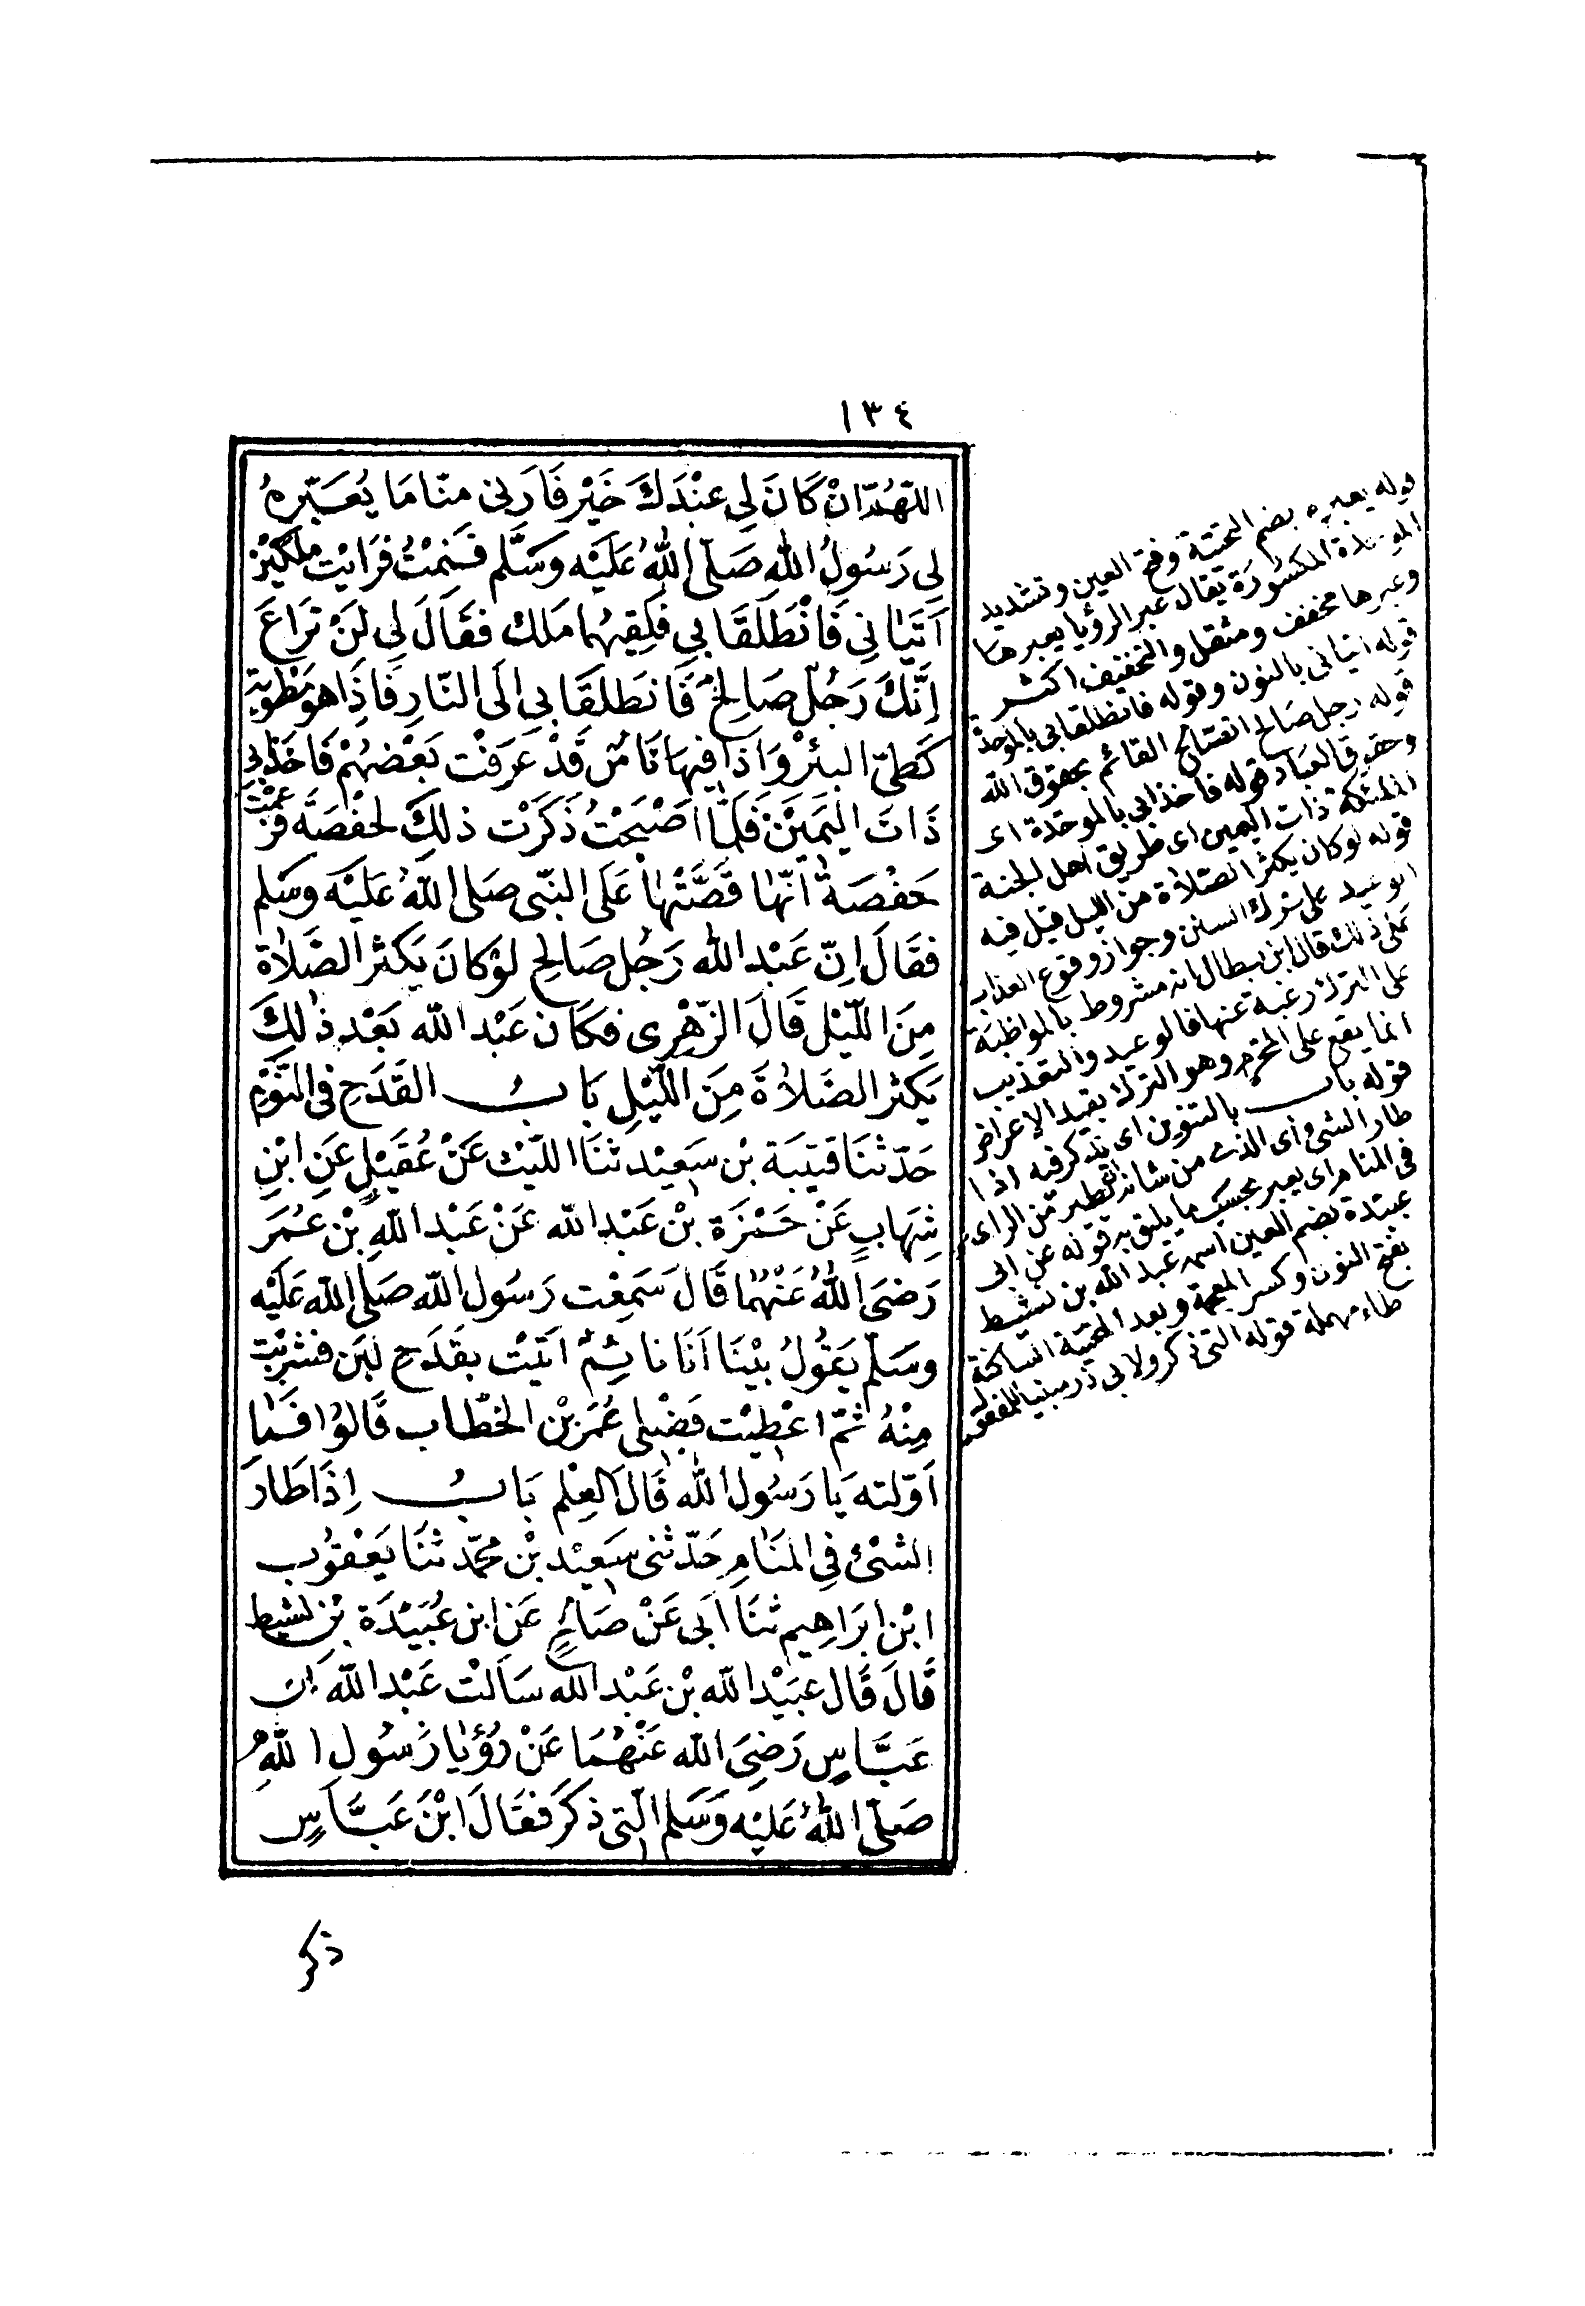 ١٣٤
اللّهُمّ انْ كَانَ لِي عنْدَكَ خَيْر فَارِني منّاما يُعَبّرهُ
لِي رَسُولُ اللّٰه صَلّى اللّٰهُ عَلَيْه وَسَلَّم فَنِمْتُ فرَايْت ملَكَيْن
اَتَيَانِي فَانْطَلَقَا بِي فَلَقِيَهُما مَلك فقَالَ لِي لَنْ تَرَاعَ
اِنَّكَ رَجُلٌ صَالِحٌ فَانطَلقَا بِي اِلَى النّارِ فَاِذَا هو مَطْويّة
كَطَيّ البئْر وَاِذَا فيهَا نَاسٌ قَدْ عَرَفْت بَعْضهُمْ فَاخَذا بِي
ذَاتَ اليَمَيْن فَلَمَّا اصْبَحْتُ ذَكَرْت ذلِكَ لحَفْصَة فزَعمَتْ
حَفْصَةُ اَنّهَا قَصَّتْهَا عَلَى النّبيّ صَلى اللّٰهُ عَليْه وسَلم
فقَالَ اِنّ عَبْد اللّٰه رَجُل صَالح لوْ كانَ يكثرُ الصَّلاة
مِنَ اللّيْل قَالَ الزّهْرِي فكَان عَبْد اللّٰه بَعْد ذٰلِكَ
يكثر الصَّلاةَ مِنَ اللّيْلِ بَابُ القَدَحِ في النّوْم
حَدّثنَا قتيْبَة بْن سَعِيْد ثنَا اللّيْث عَنْ عُقَيْلٍ عَنِ ابْنِ
شِهَابٍ عَنْ حَمْزَة بْن عَبْد اللّٰه عَنْ عَبْد اللّٰهِ بْن عُمَر
رَضيَ اللّٰهُ عَنْهُمَا قَالَ سَمِعْت رَسُول اللّٰه صَلى اللّٰه عَلَيْه
وسَلّم يَقُولُ بيْنَا اَنَا نائِمٌ اتيْت بقَدَحِ لبَن فشَربْت
مِنْهُ ثمّ اعْطيْت فَضْلي عُمَر بْن الخطّاب قَالوُا فَمَا
اَوّلته يَا رَسُول اللّٰه قَالَ العِلْم بَابُ اِذَا طَارَ
الشيْئ فِي المَنَامِ حَدّثنى سَعِيْد بْن محمّد ثنَا يَعْقُوب
ابْن ابرَاهِيم ثنَا اَبي عَنْ صَالحٍ عَن ابن عُبَيْدَة بْن نشيط
قَالَ قَال عبَيْد اللّٰه بْن عَبْد اللّٰه سَالتْ عَبْد اللّٰه بْن
عَبَّاسٍ رَضيَ اللّٰه عَنْهُمَا عَنْ رُؤْيَا رَسُول اللّٰهِ
صَلّى اللّٰهُ عَليْه وَسَلم الّتي ذكَرَ فقَالَ ابْن عَبَّاسٍ
ذكر
قوله يعبره بضم التحتية وفتح العين وتشديد
الموحدة المكسورة يقال عبر الرؤيا يعبرها
وعبرها مخفف ومثقل والتخفيف اكثر
قوله اتياني بالنون وقوله فانطلقا بي بالموحدة
قوله رجل صالح الصالح القائم بحقوق الله
وحقوق العباد قوله فاخذا بي بالموحدة اى
الملئكة ذات اليمين اى طريق اهل الجنة
قوله لو كان يكثر الصلاة من الليل قيل فيه
الوعيد على ترك السنن وجواز وقوع العذاب
على ذلك قال ابن بطال انه مشروط بالمواظبة
على الترك رغبة عنها فالوعيد والتعذيب
انما يقع على المحرم وهو الترك بقيد الاعراض
قوله باب بالتنوين اى يذكر فيه اذا
طار الشيء اى الذي من شانه التطير من الراى
في المنام اى يعبر بحسب ما يليق به قوله عن ابي
عبيدة بضم العين اسمه عبد الله بن نشيط
بفتح النون وكسر المعجمة وبعد التحتية الساكنة
طاء مهملة قوله التي ذكر ولابي ذر مبنيا للمفعول